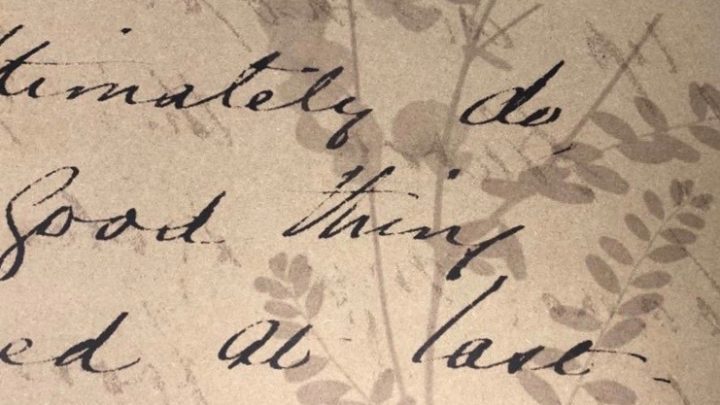 ltimately do,
Good thing
ed at last.